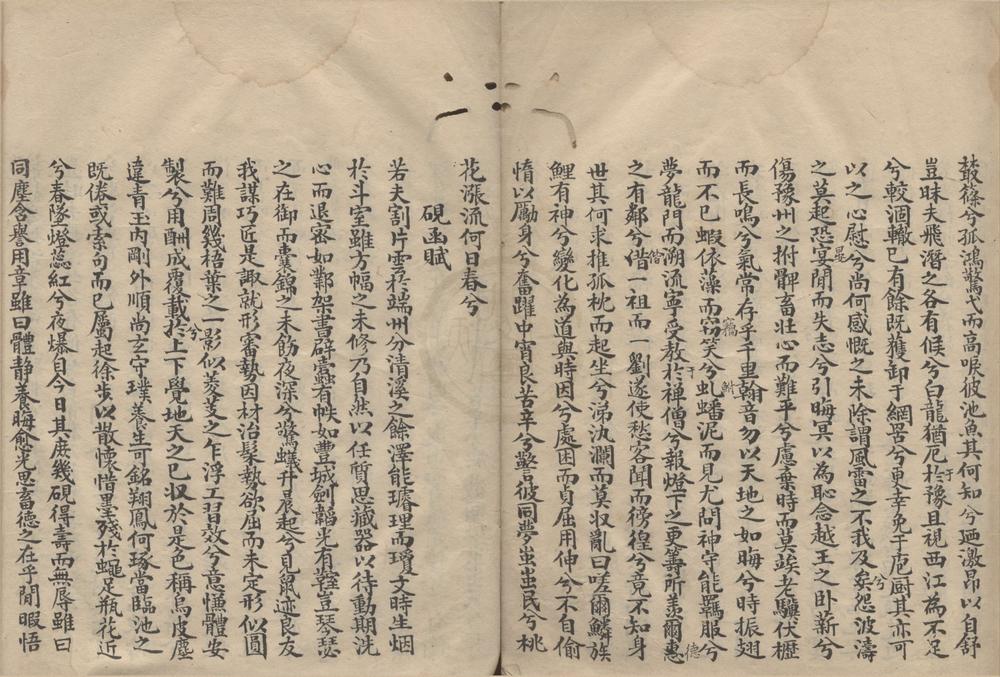 鼓篨兮孤鴻驚弋而高唳彼池魚其何知兮迺激昂以自舒
豈昧夫飛潛之各有候兮白龍猶厄於豫且視西江為不足
兮較涸轍已有餘既獲卸于網罟兮更幸免于庖厨其亦可
以之心慰兮尚何感慨之未除謂風雷之不我及矣怨波濤
之莫起恐宴閒而失志兮引晦冥以為恥念越王之卧薪兮
傷豫州之拊髀畜壮心而難平兮慮棄時而莫竢老驥伏櫪
而長鳴兮氣常存乎千里翰音勿以天地之如晦兮時振翅
而不已蝦依藻而窃笑兮虬蟠泥而見尤問神守能羈服兮
夢龍門而溯流寧受教於禅僧兮報燈下之更籌所羨爾惠
之有鄰兮借一祖而一劉遂使愁客聞而徬徨兮竟不知身
世其何求推孤枕而起坐兮涕汍瀾而莫収亂曰嗟爾鱗族
鯉有神兮變化為道與時因兮處困而貞屈用伸兮不自偷
惰以勵身兮奮躍中宵良苦辛兮警告彼同夢蚩蚩民兮桃
花漲流何日春兮
硯函賦
若夫割片雲於端州分清溪之餘澤能璿理而瓊文時生烟
於斗室雖方幅之未修乃自然以任質思藏器以待動期洗
心而退密如鄴架書辟蠹有帙如豊城劍韜光有鞘豈琴瑟
之在御而囊錦之未飭夜深兮驚蟻升晨起兮見鼠迹良友
我謀巧匠是諏就形審勢因材治髹勢欲屈而未定形似圓
而難周幾梧葉之一影似菱芰之乍浮工習效兮意慊體安
製兮用酬成覆載於上下覺地天之已収於是色稱烏皮塵
違青玉内剛外順尚玄守璞養生可銘翔鳳何琢當臨池之
既倦或索句而已屬起徐步以散懷惜墨殘於蠅足瓶花近
兮春墜燈蕊紅兮夜爆自今日其庶幾硯得壽而無辱雖曰
同塵含譽用章雖曰體静養晦愈光思畜德之在乎閒暇悟